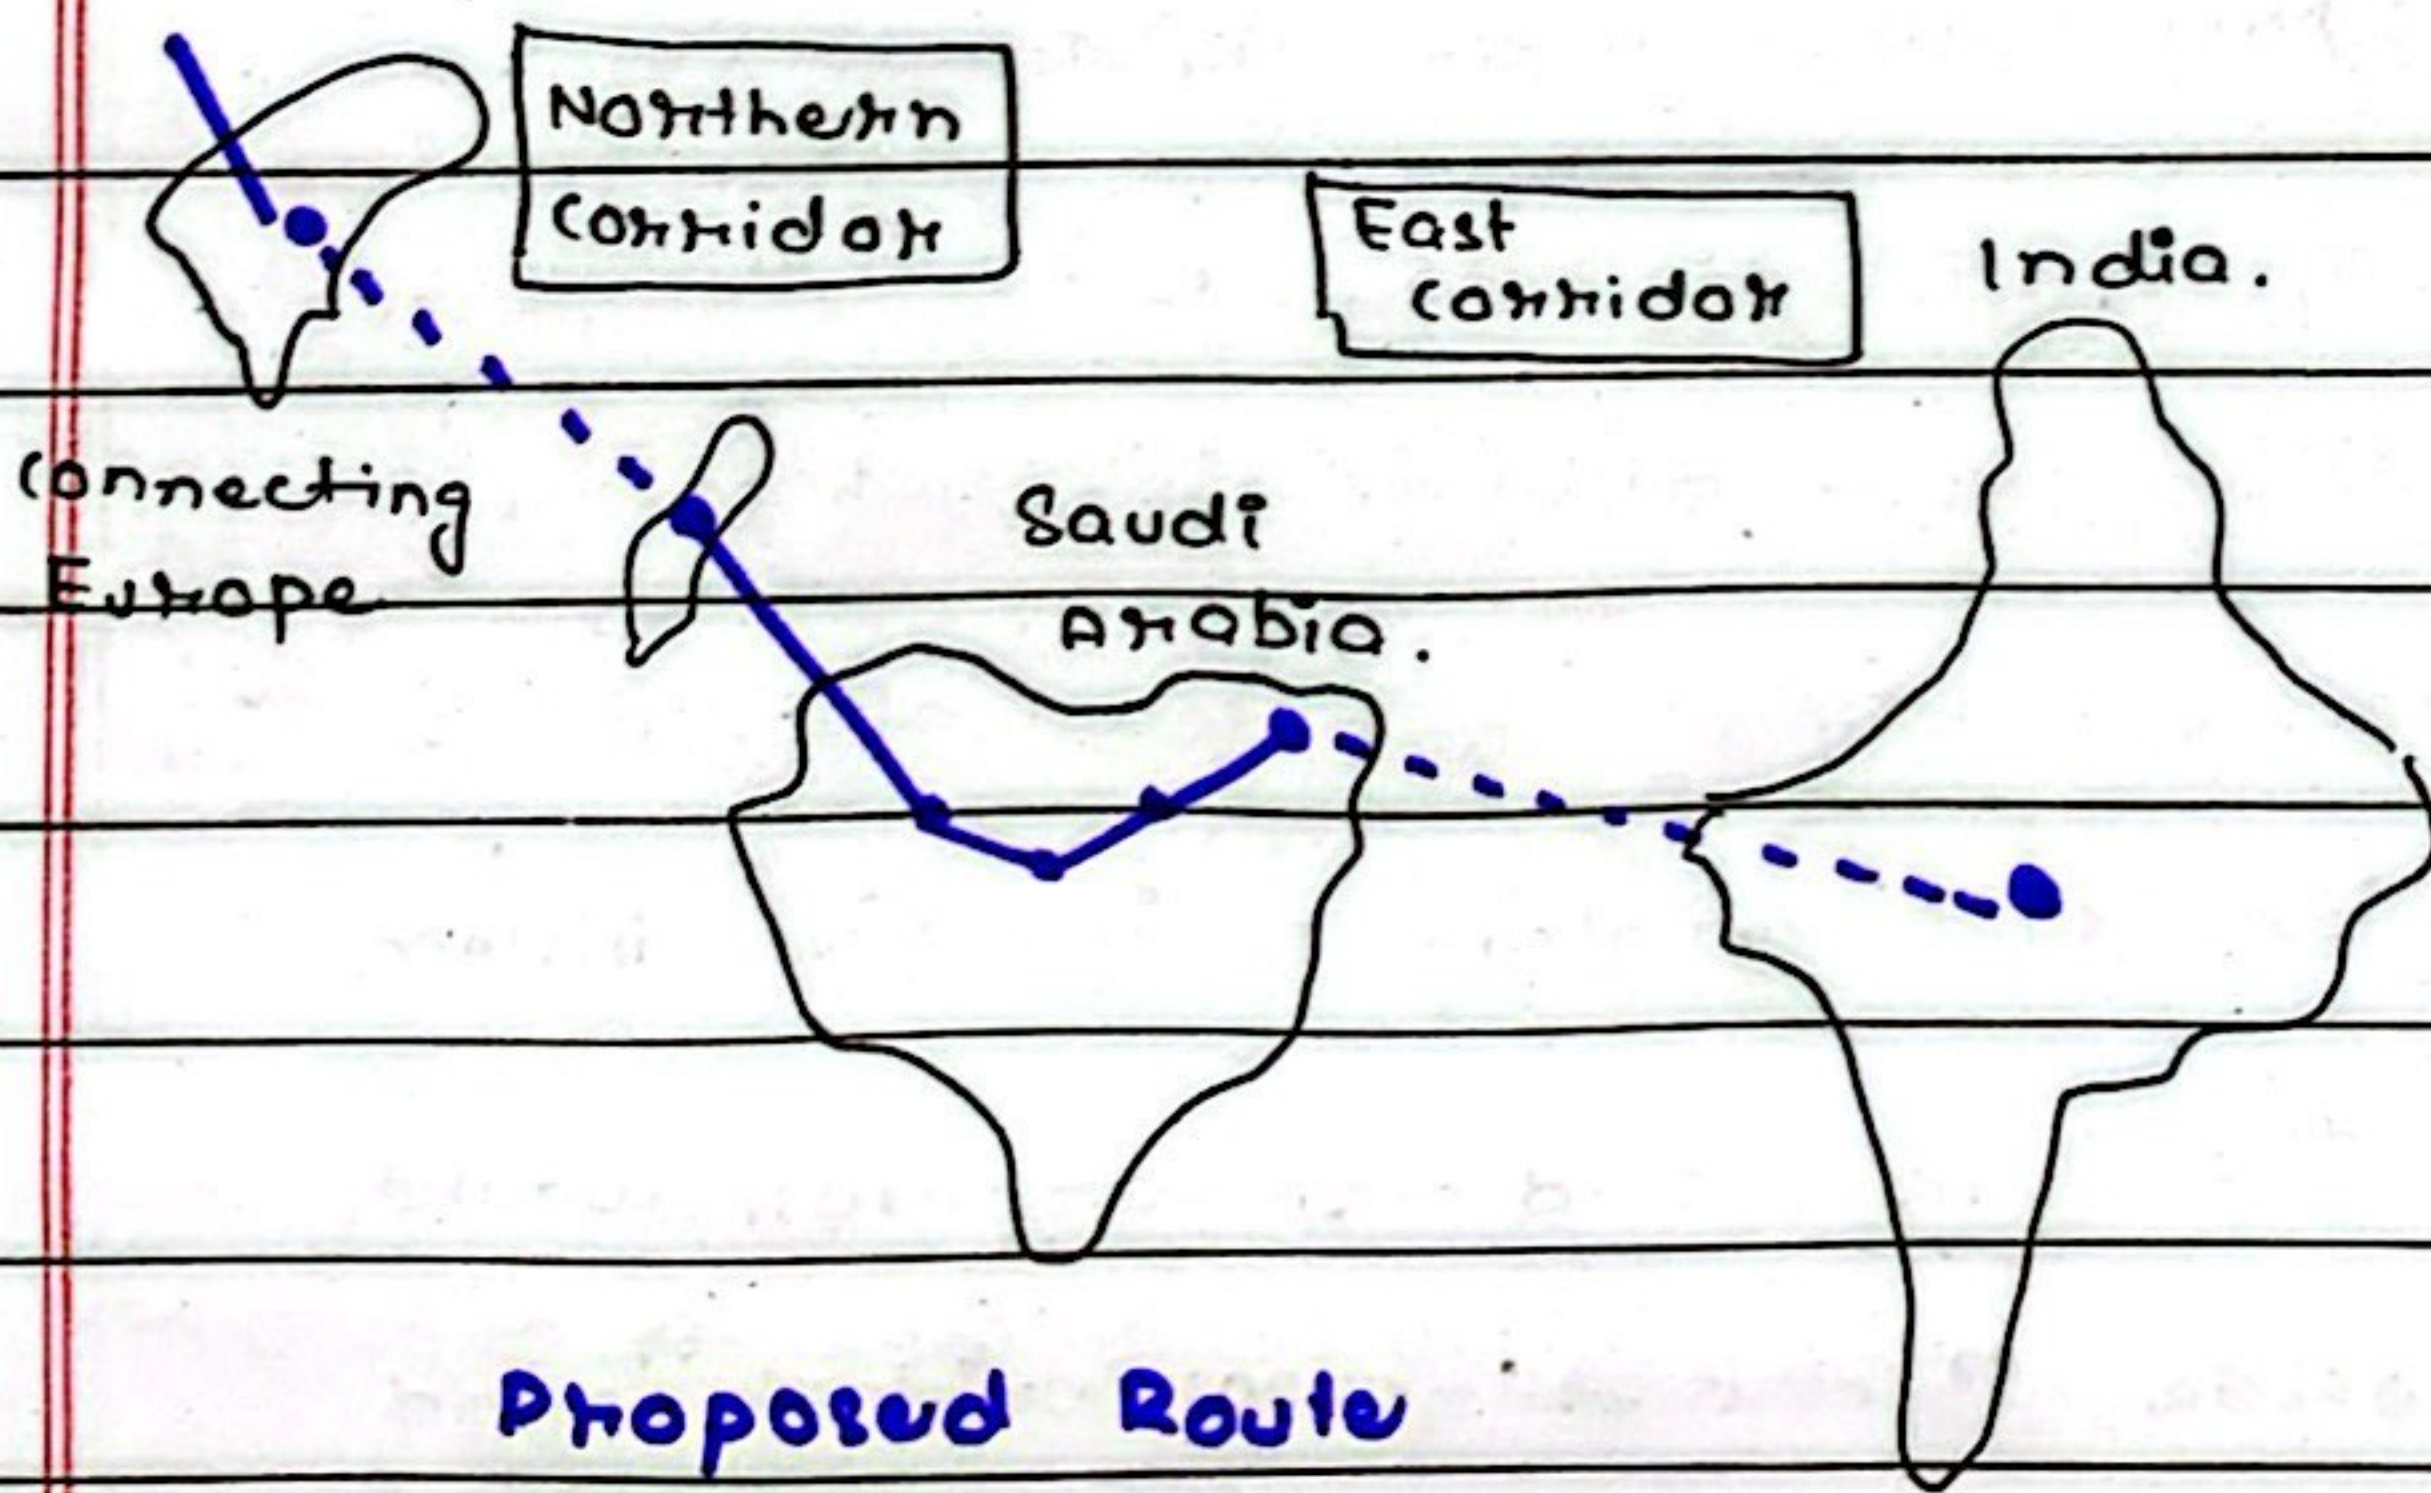 Northern
Corridor
East
corridor
India.
Connecting
Europe
Saudi
Arabia.
Proposed Route